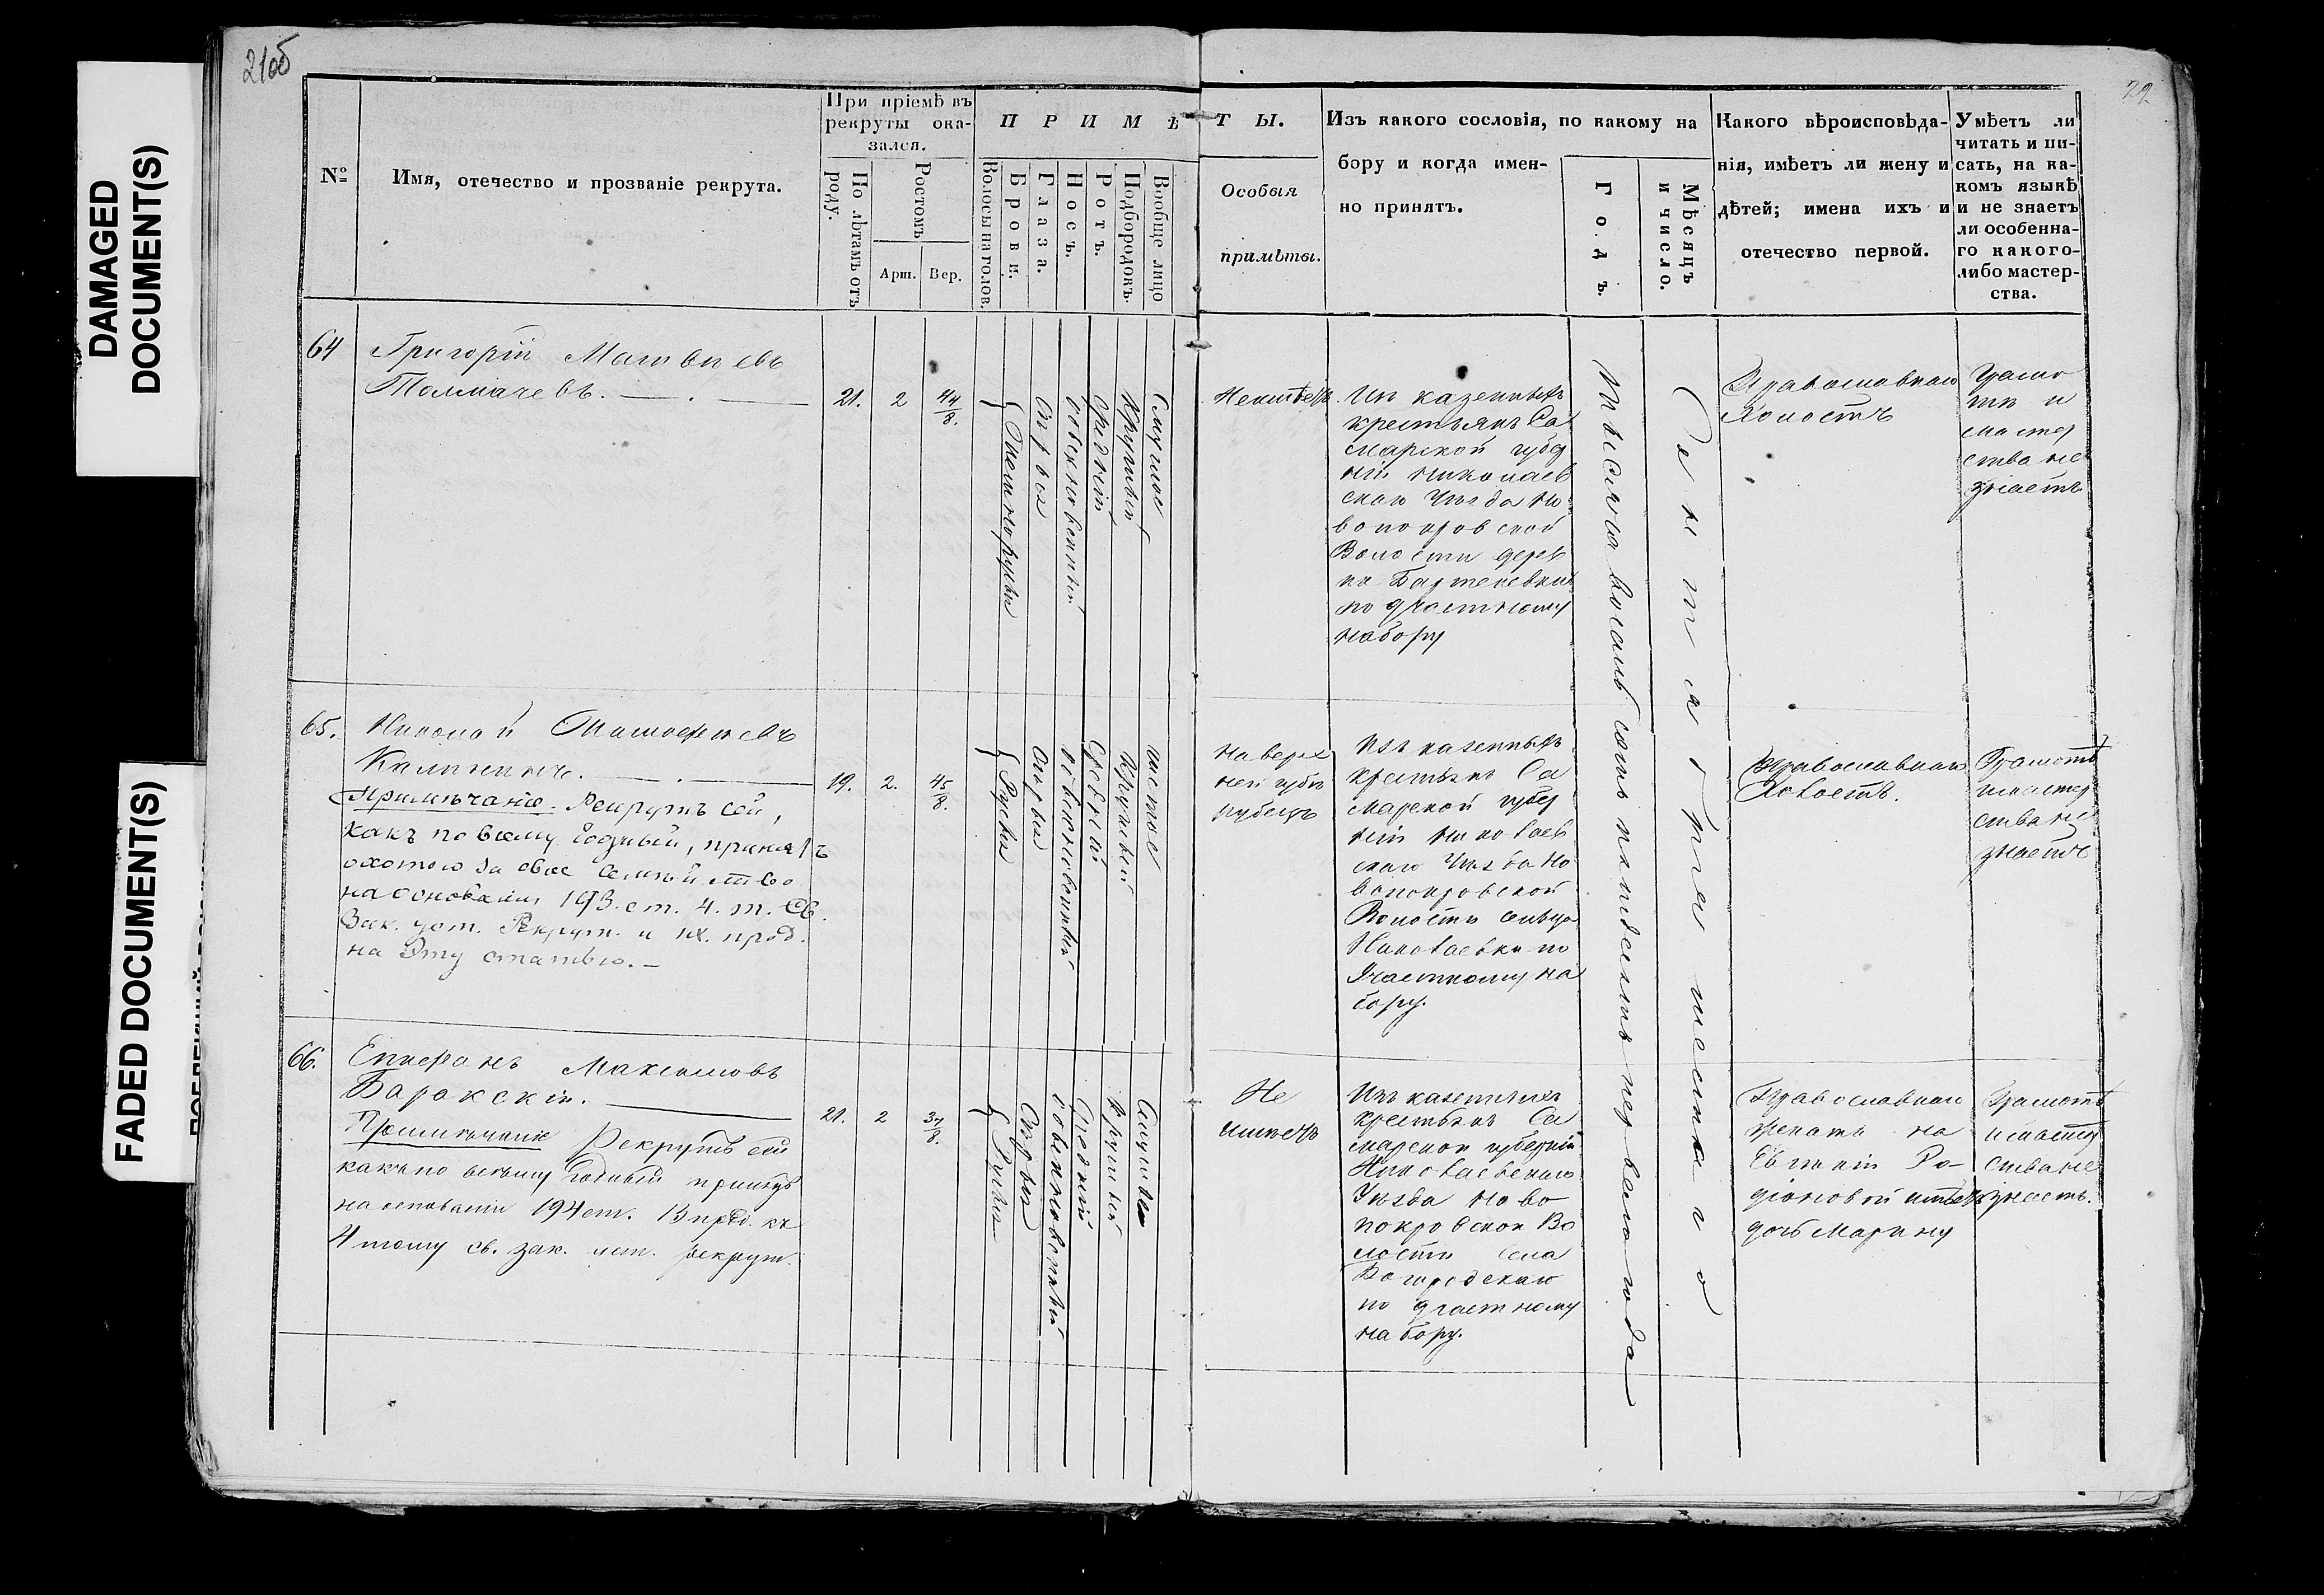 DAMAGED
DOCUMENT(S)
FADED DOCUMENT(S)
21об
22
№
Имя, отечество и прозваніе рекрута.
При пріемѣ въ
рекруты ока-
зался.
По лѣтамъ отъ
роду.
Ростомъ
Арш.
Вер.
П Р И М Ѣ Т Ы.
Волосы на голов.
Брови.
Глаза.
Носъ.
Ротъ.
Подбородокъ.
Вообще лицо
Особыя
примѣты.
Изъ какого сословія, по какому на
бору и когда имен-
но принятъ.
Годъ.
Мѣсяцъ
и число.
Какого вѣроисповѣда-
нія, имѣетъ ли жену и
дѣтей; имена ихъ и
отечество первой.
Умѣетъ ли
читать и пи-
сать, на ка-
комъ языкѣ
и не знаетъ
ли особенна-
го какого-
либо мастер-
ства.
64
Григорій Матвѣевъ
Толмачевъ.
21.
2
4 4/8.
Темнорусы
Сѣрыя
обыкновенный
Средній
Круглый
Смуглое
Неимѣетъ.
Изъ казенныхъ
крестьянъ Са
марской губер
ніи Николаев
скаго Уѣзда Но
вопокровской
Волости дерев
ни Бартеневки
по участному
набору
Тысяча восемь сотъ пятьдесятъ перваго года
Сентября шестаго
Православнаго
Холостъ
Грамо
тѣ и
мастер
ства не
знаетъ
65.
Николай Тимофѣевъ
Калининъ.
Примѣчаніе. Рекрутъ сей,
какъ по всему годный, принятъ
охотою за свое семейство
на основаніи 193. ст. 4. т. Св.
Зак. уст. Рекрут. и IX. прод.
на Эту статью.
19.
2.
4 5/8.
Русы
Сѣрыя
обыкновенный
Средній
Круглый
чистое
На верх
ней губѣ
рубецъ
Изъ казенныхъ
крестьянъ Са
марской губер
ніи Николаев
скаго Уѣзда Но
вопокровской
Волости сельца
Николаевки по
Участному на
бору.
Православнаго
Холостъ.
Грамотѣ
и мастер
ства не
знаетъ
66.
Епифанъ Максимовъ
Баракскій.
Примѣчаніе Рекрутъ сей
какъ по всему годный принятъ
на основаніи 194 ст. 13 прод. къ
4 тому св. зак. уст. рекрут.
21.
2
3 7/8.
Русыя
Сѣрыя
обыкновенный
Средній
Круглый
Смуглое
Не
имѣетъ
Изъ казенныхъ
крестьянъ Са
марской губерніи
Николаевскаго
Уѣзда Ново
покровской Во
лости села
Богородскаго
по участному
набору.
Православнаго
женатъ на
Евгеніи Ро-
діоновой имѣетъ
дочь Марину
Грамотѣ
и мастер
ства не
знаетъ.